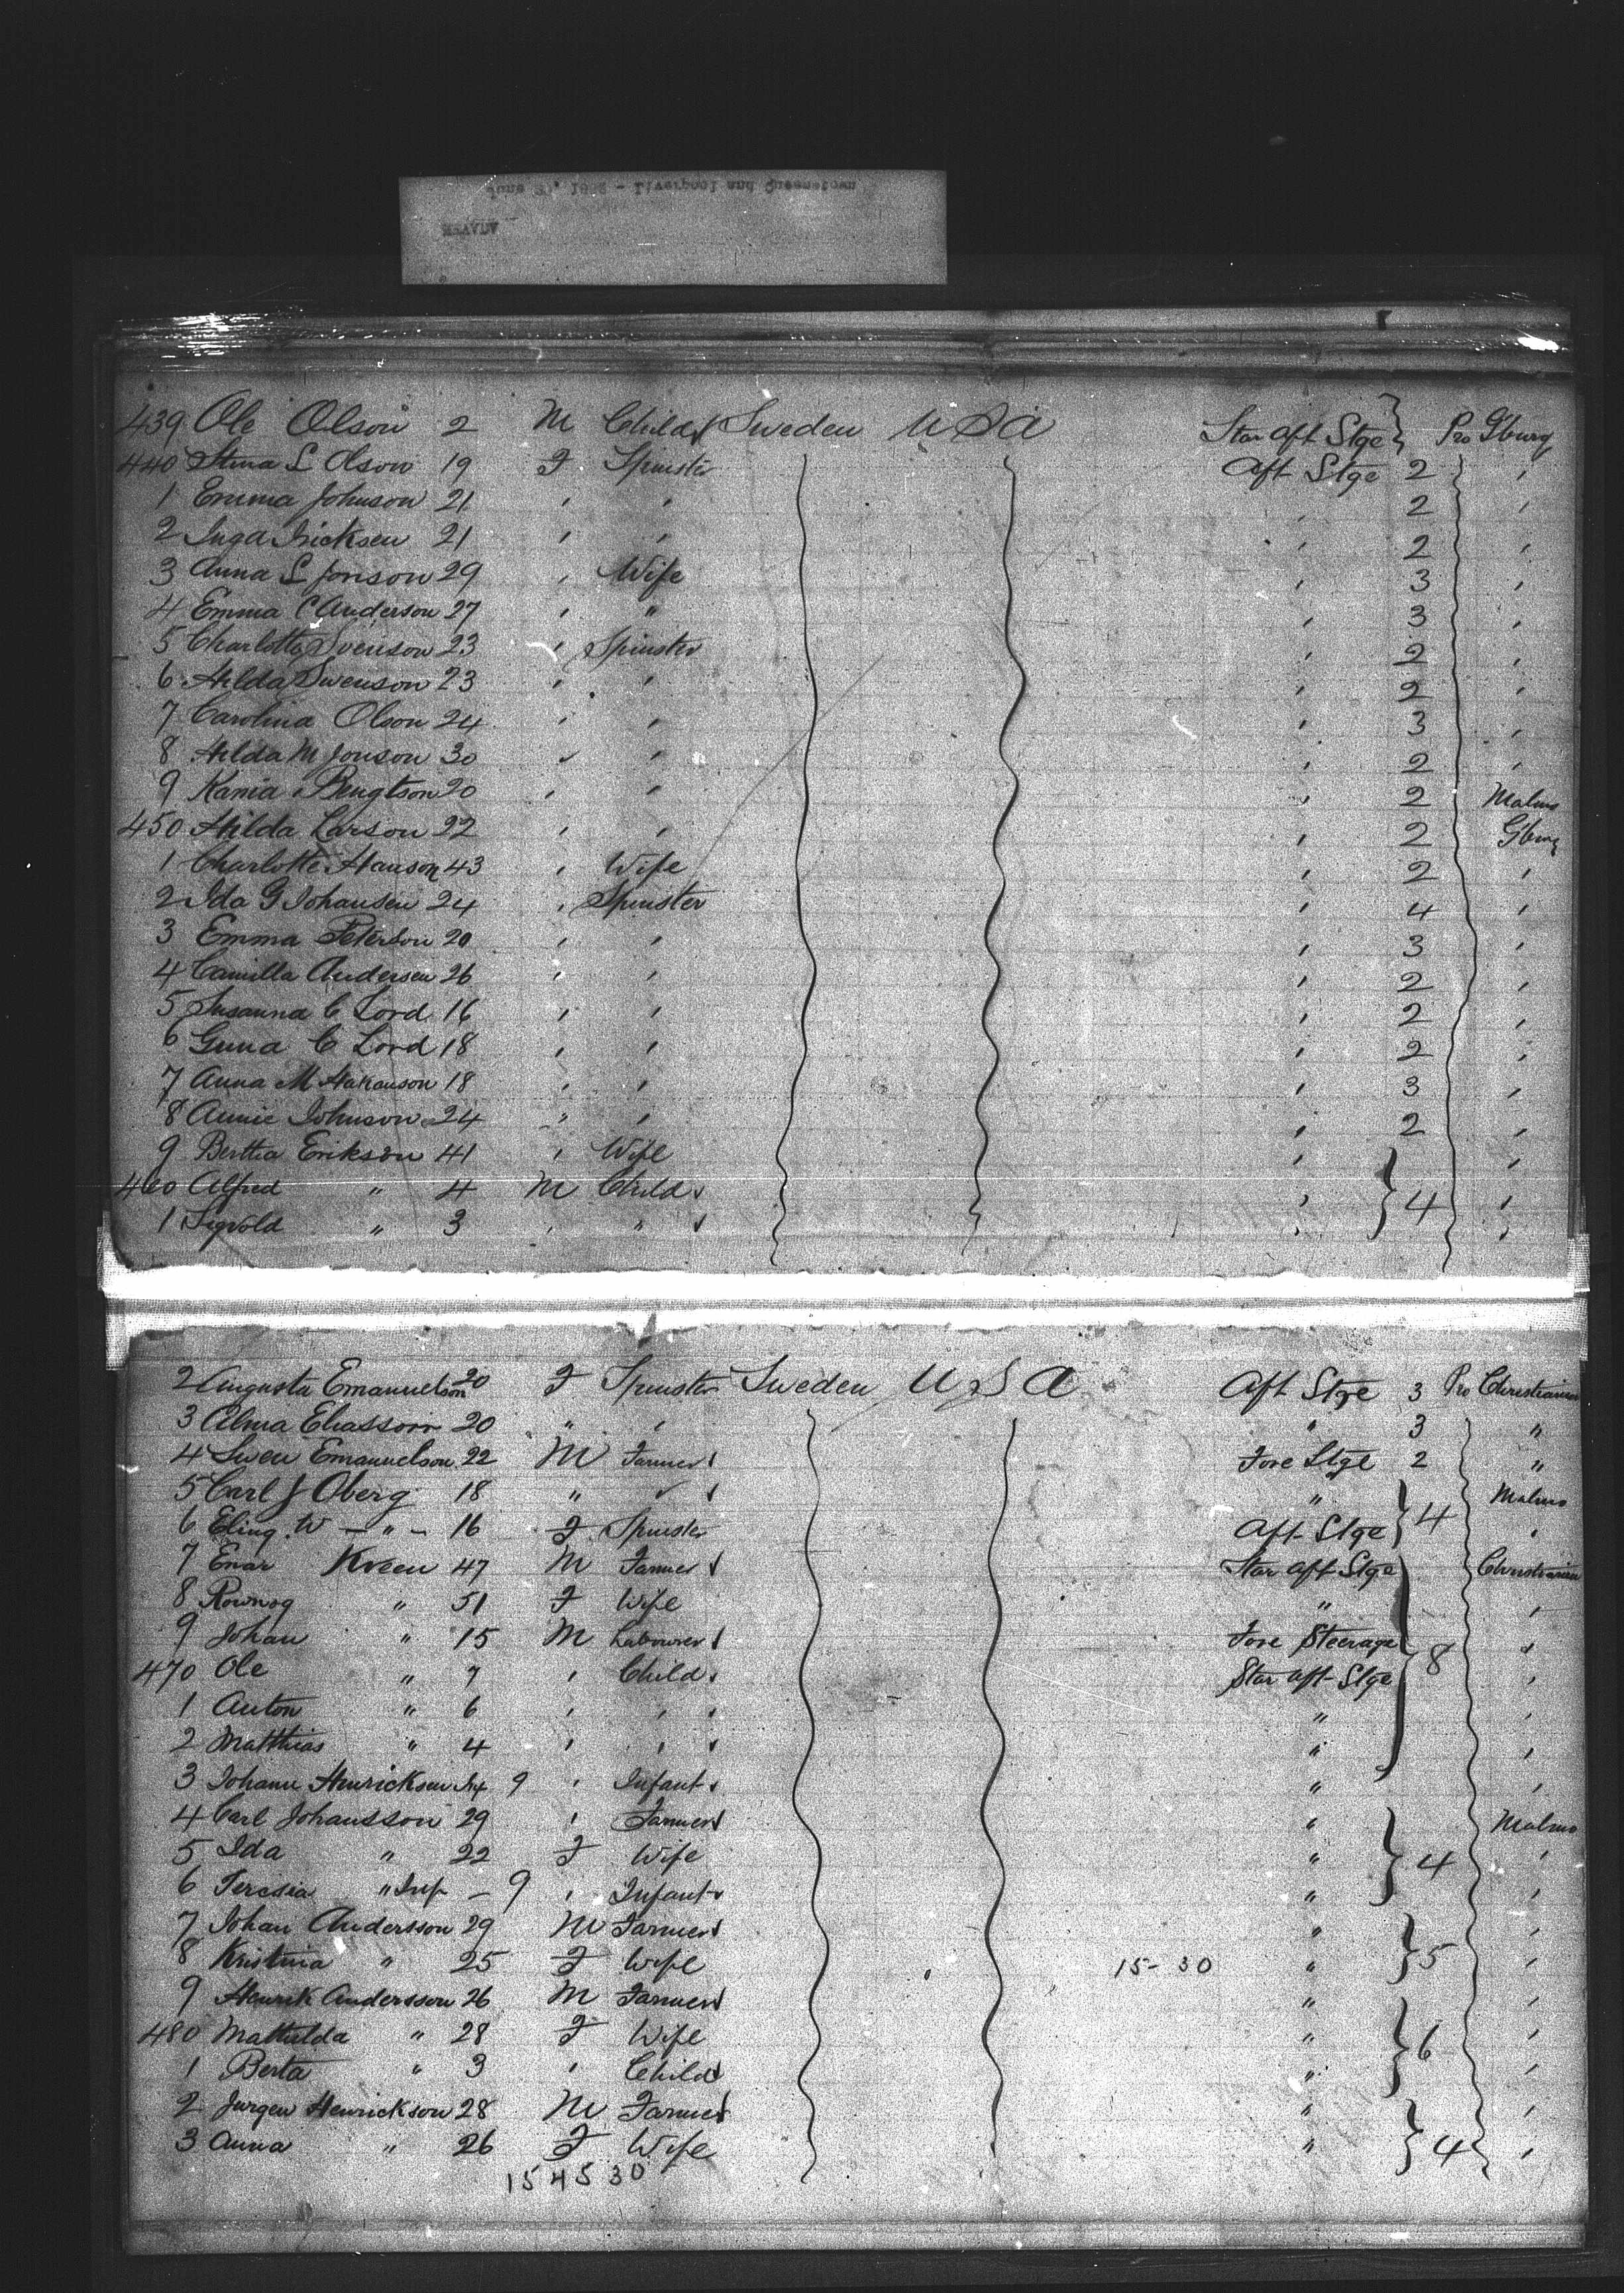 - Liverpool and Queenstown
439 Ole Olson 2 M Child Sweden USA Star Aft Stge } Pro Gburg
440 Stina L Olson 19 F Spinster Aft Stge 2 '
1 Emma Johnson 21 ' ' ' 2 '
2 Inga 21 ' ' ' 2 '
3 Anna L Jonson 29 ' Wife ' 3 '
4 Emma C Anderson 27 ' " ' 3 '
5 Charlotte Svenson 23 ' Spinster ' 2 '
6 Hilda Swenson 23 ' ' ' 2 '
7 Carolina Olson 24 ' ' ' 3 '
8 Hilda M Jonson 30 ' ' ' 2 '
9 Bengtson 20 ' ' ' 2 Malmo
450 Hilda Larson 22 ' ' ' 2 Gburg
1 Charlotte Hanson 43 ' Wife ' 2 '
2 Ida G Johansen 24 ' Spinster ' 4 '
3 Emma Peterson 20 ' ' ' 3 '
4 Camilla Andersen 26 ' ' ' 2 '
5 Susanna C Lord 16 ' ' ' 2 '
6 C Lord 18 ' ' ' 2 '
7 Anna M Hakanson 18 ' ' ' 3 '
8 Annie Johnson 24 " ' ' 2 '
9 Bertha Erikson 41 ' Wife ' '
460 Alfred " 4 M Child ' } 4 '
1 Sigvold " 3 ' " ' '
2 Augusta Emanuelson 20 F Spinster Sweden USA Aft Stge 3 Pro Christiania
3 Alma Eliasson 20 " ' " 3 "
4 Swen Emanuelson 22 M Farmer Fore Stge 2 "
5 Carl J Oberg 18 " " " Malmo
6 W - " - 16 F Spinster Aft Stge } 4 '
7 Kveen 47 M Farmer Star Aft Stge Christiania
8 " 51 F Wife " '
9 Johan " 15 M Labourer Fore Steerage '
470 Ole " 7 ' Child Star Aft Stge } 8 '
1 Anton " 6 ' ' " '
2 Matthias " 4 ' ' " '
3 Johann Henricksen Inf 9 ' Infant " '
4 Carl Johansson 29 ' Farmer " Malmo
5 Ida " 22 F Wife " } 4 '
6 Teresia " Inf - 9 ' Infant " '
7 Johan Andersson 29 M Farmer " '
8 Kristina " 25 F Wife 15-30 " } 5 '
9 Henrik Andersson 26 M Farmer " '
480 Mathilda " 28 F Wife " } 6 '
1 Berta " 3 ' Child " '
2 Jurgen Henrickson 28 M Farmer " '
3 Anna " 26 F Wife " } 4 '
15 45 30